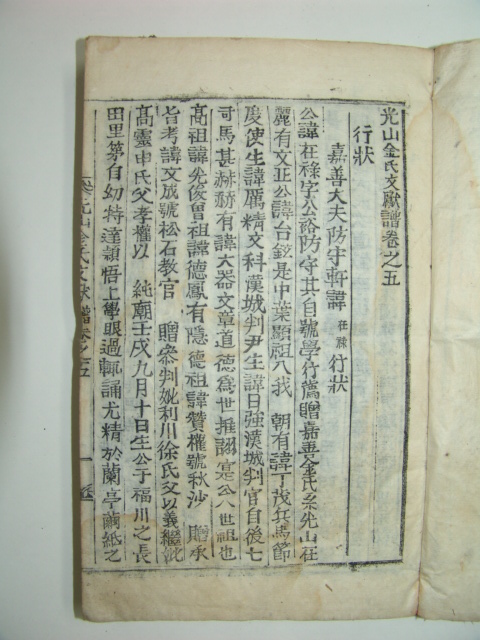 光山金氏文獻譜卷之五
行狀
嘉善大夫防守軒諱 在祿 行狀
公諱在祿字公裕防守其自號學行薦贈嘉善金氏系光山在
麗有文正公諱台鉉是中葉顯祖入我 朝有諱丁茂兵馬節
度使生諱厲精文科漢城判尹生諱日強漢城判官自後七
司馬甚赫赫有諱大器文章道德爲世推詡寔公八世祖也
高祖諱光俊曾祖諱德鳳有隱德祖諱贊權號秋沙 贈承
旨考諱文成號松石教官 贈參判妣利川徐氏父以義繼妣
高靈申氏父孝權以 純廟壬戌九月十日生公于福川之長
田里第自幼特達穎悟上學眼過輒誦尤精於蘭亭繭紙之
光山金氏文獻譜卷之五 一